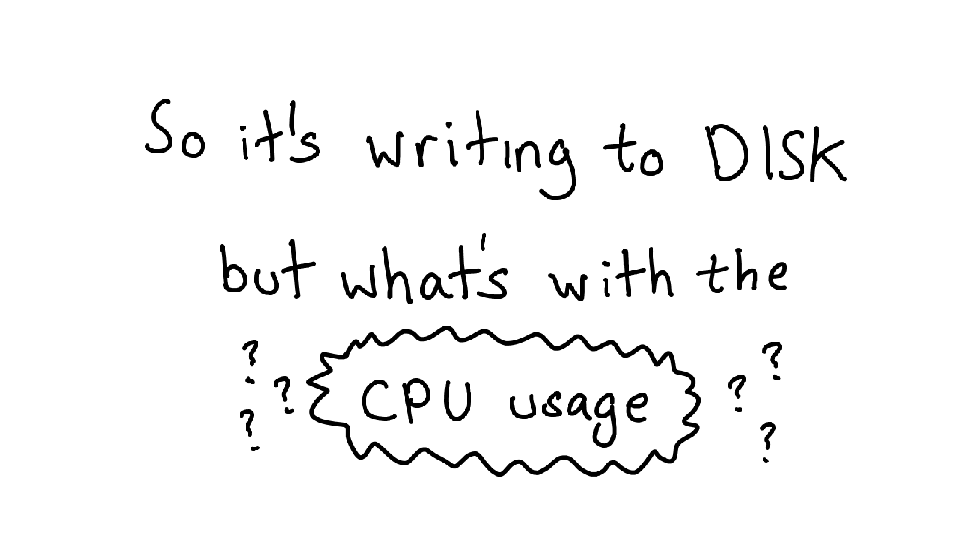 So it's writing to DISK
but what's with the
? ? ? CPU usage ? ? ?